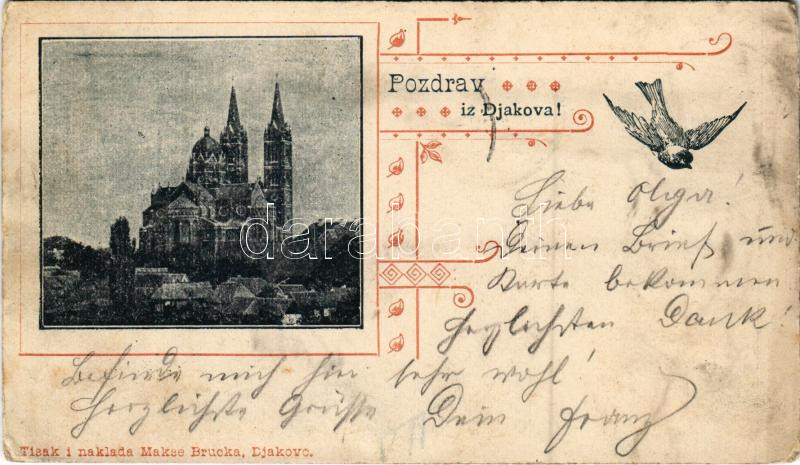 Pozdrav
iz Djakova!
Liebe Olga!
Deinen Brief und
Karte bekommen
herzlichsten Dank!
Befinde mich hier sehr wohl!
Herzlichste Grüsse Dein Franz
Tisak i naklada Makse Brucka, Djakovo.
darabanth